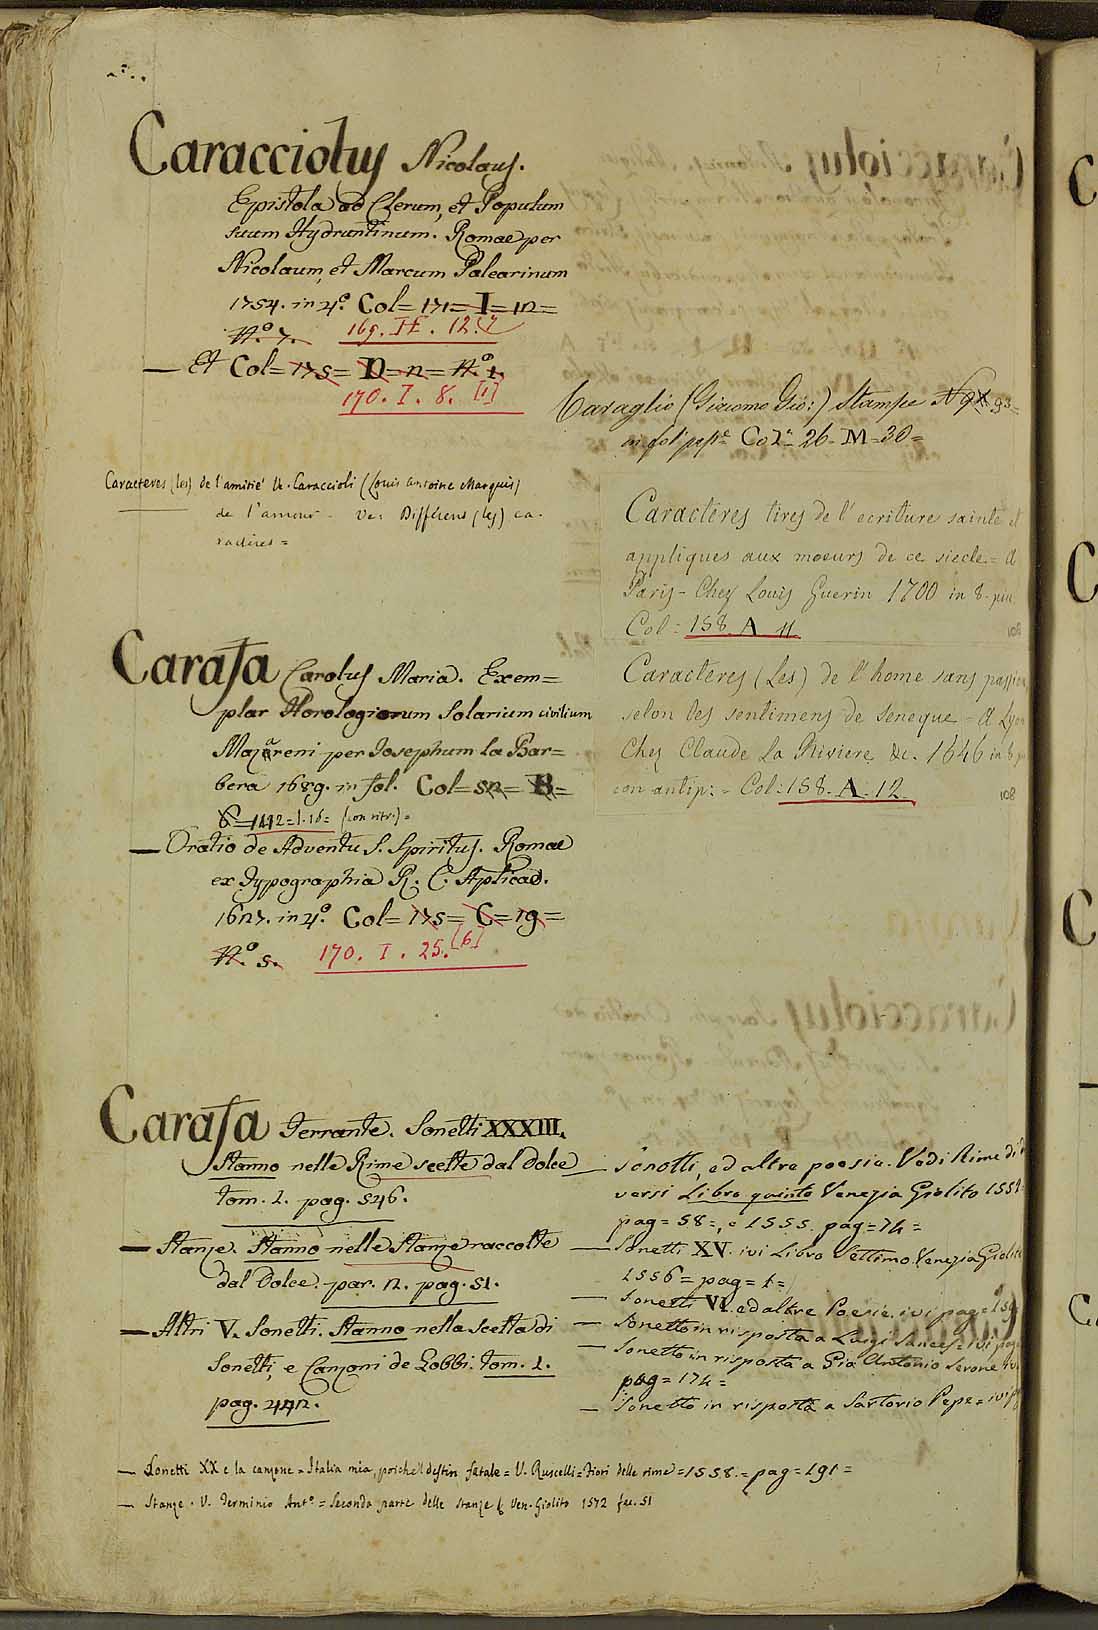 Caracciolus Nicolaus.
Epistola ad Clerum, et Populum
suum Hydruntinum. Romae per
Nicolaum, et Marcum Palearinum
1754. in 4.º Col= 171= I= 12=
N.º 7. 169. II. 12.
— Et Col= 175= D= n= N.º 1.
170. I. 8. [1]
Caracteres (les) de l'amitié V. Caraccioli (Louis Antoine Marquis)
de l'amour - V. Differens (les) ca-
racteres =
Carafa Carolus Maria. Exem=
plar Horologiorum Solarium civilium
Mazareni per Josephum la Bar=
bera 1689. in fol. Col= 52= B=
6= 142= I. 16= (con ritr.)=
— Oratio de Adventu S. Spiritus. Romae
ex Typographia R. C. Aplicad.
1627. in 4.º Col= 175= C= 19=
N.º 5. 170. I. 25. [6]
Carafa Ferrante. Sonetti XXXIII.
Stanno nelle Rime scelte dal Dolce
tom. 1. pag. 546.
— Stanze. Stanno nelle Stanze raccolte
dal Dolce. par. 2. pag. 51.
— Altri V. Sonetti. Stanno nella scelta di
Sonetti, e Canzoni de Gobbi. tom. 1.
pag. 442.
— Sonetti XX e la canzone = Italia mia, poiche'l destin fatale = V. Ruscelli = Fiori delle rime = 1558. = pag = 191 =
— Stanze. V. Terminio Ant.º = Seconda parte delle stanze & Ven. Giolito 1572 fac. 51
Caraglio (Giacomo Gio:) Stampe N 93=
in fol. Col.ª 26- M- 30=
Caracteres tires de l'ecriture sainte et
appliques aux moeurs de ce siecle = A
Paris - Chez Louis Guerin 1700 in 8.
Col: 158. A 11.
108
Caracteres (Les) de l'home sans passion
selon les sentimens de seneque = A Lyon
Chez Claude La Riviere &c. 1646 in 8
con antip: - Col: 158. A. 12.
108
— Sonetti, ed altre poesie. Vedi Rime di
versi Libro quinto Venezia Giolito
pag = 58=, e 1555. pag = 74 =
— Sonetti XV. ivi Libro Settimo. Venezia Giolito
1556 = pag = 1 =
— Sonetti VI. ed altre Poesie. ivi pag =
— Sonetto in risposta a Luigi Sances = ivi pag
— Sonetto in risposta a Gio Antonio Serone ivi
pag = 174 =
— Sonetto in risposta a Sartorio Pepe = ivi